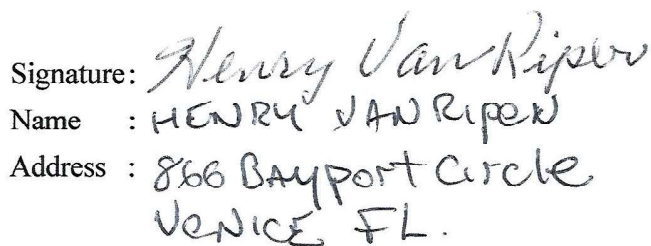 Signature: Henry Van Riper
Name : HENRY VAN RIPER
Address : 866 BAYPORT CIRCLE
VENICE FL.